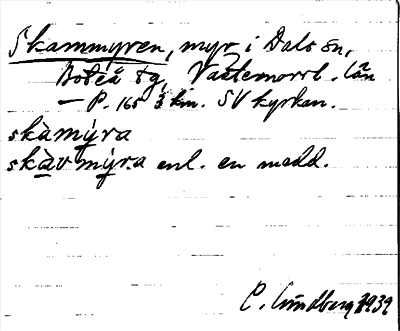 Skammyren, myr i Dals sn,
Boteå tg, Västernorrl. län
— P. 165 3 km. SV kyrkan.
skàmỳra
skàv mỳra enl. en medd.
C. Lundberg 1939